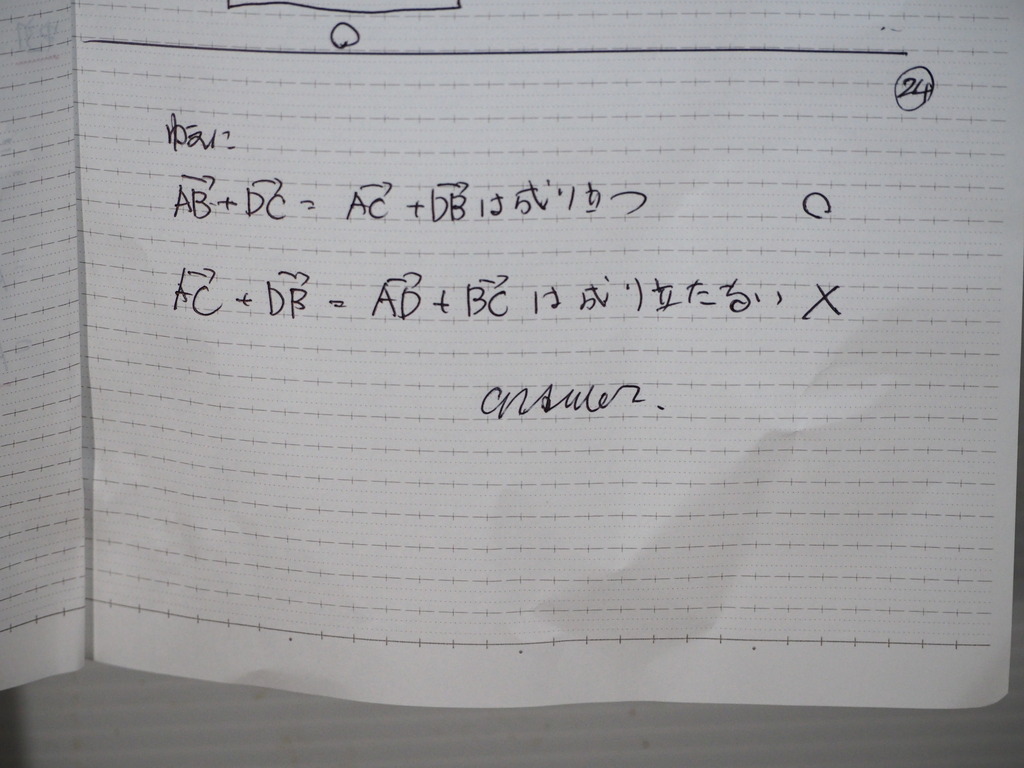 24
ゆえに
AB+DC = AC+DBは成り立つ ○
AC+DB = AD+BCは成り立たない ×
answer.